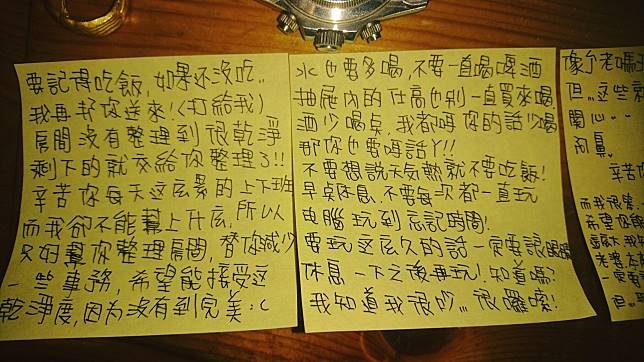 要記得吃飯,如果还沒吃..
我再帮你送來!(打給我)
房間沒有整理到很乾淨
剩下的就交給你整理了!!
辛苦你每天这麼累的上下班
而我卻不能幫上什麼,所以
只好幫你整理房間,替你減少
一些事務,希望能接受这
乾淨度,因为沒有到完美:C
水也要多喝,不要一直喝啤酒
抽屜內的 高也別一直買來喝
酒少喝点,我都 你的話少喝
那你也要 話ㄚ!!
不要想說天氣熱就不要吃飯!
早点休息,不要每次都一直玩
电腦玩到忘記時間!
要玩这麼久的話一定要讓眼睛
休息一下之後再玩!知道嗎?
我知道我很吵...很囉嗦!
像个老媽
但...这些
開心..
辛苦
而我很
希望你